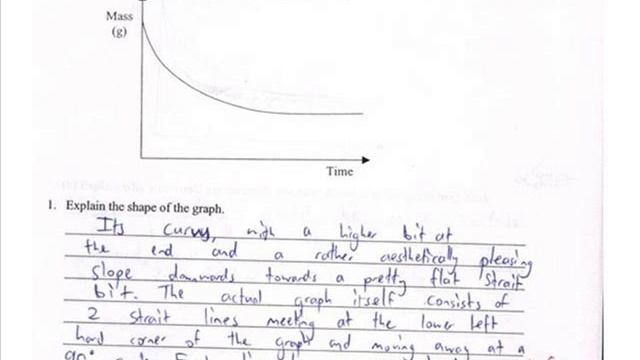 Mass
(g)
Time
1. Explain the shape of the graph.
Its curvy, with a higher bit at
the end and a rather aesthetically pleasing
slope downwards towards a pretty flat strait
bit. The actual graph itself consists of
2 strait lines meeting at the lower left
hand corner of the graph and moving away at a
90°